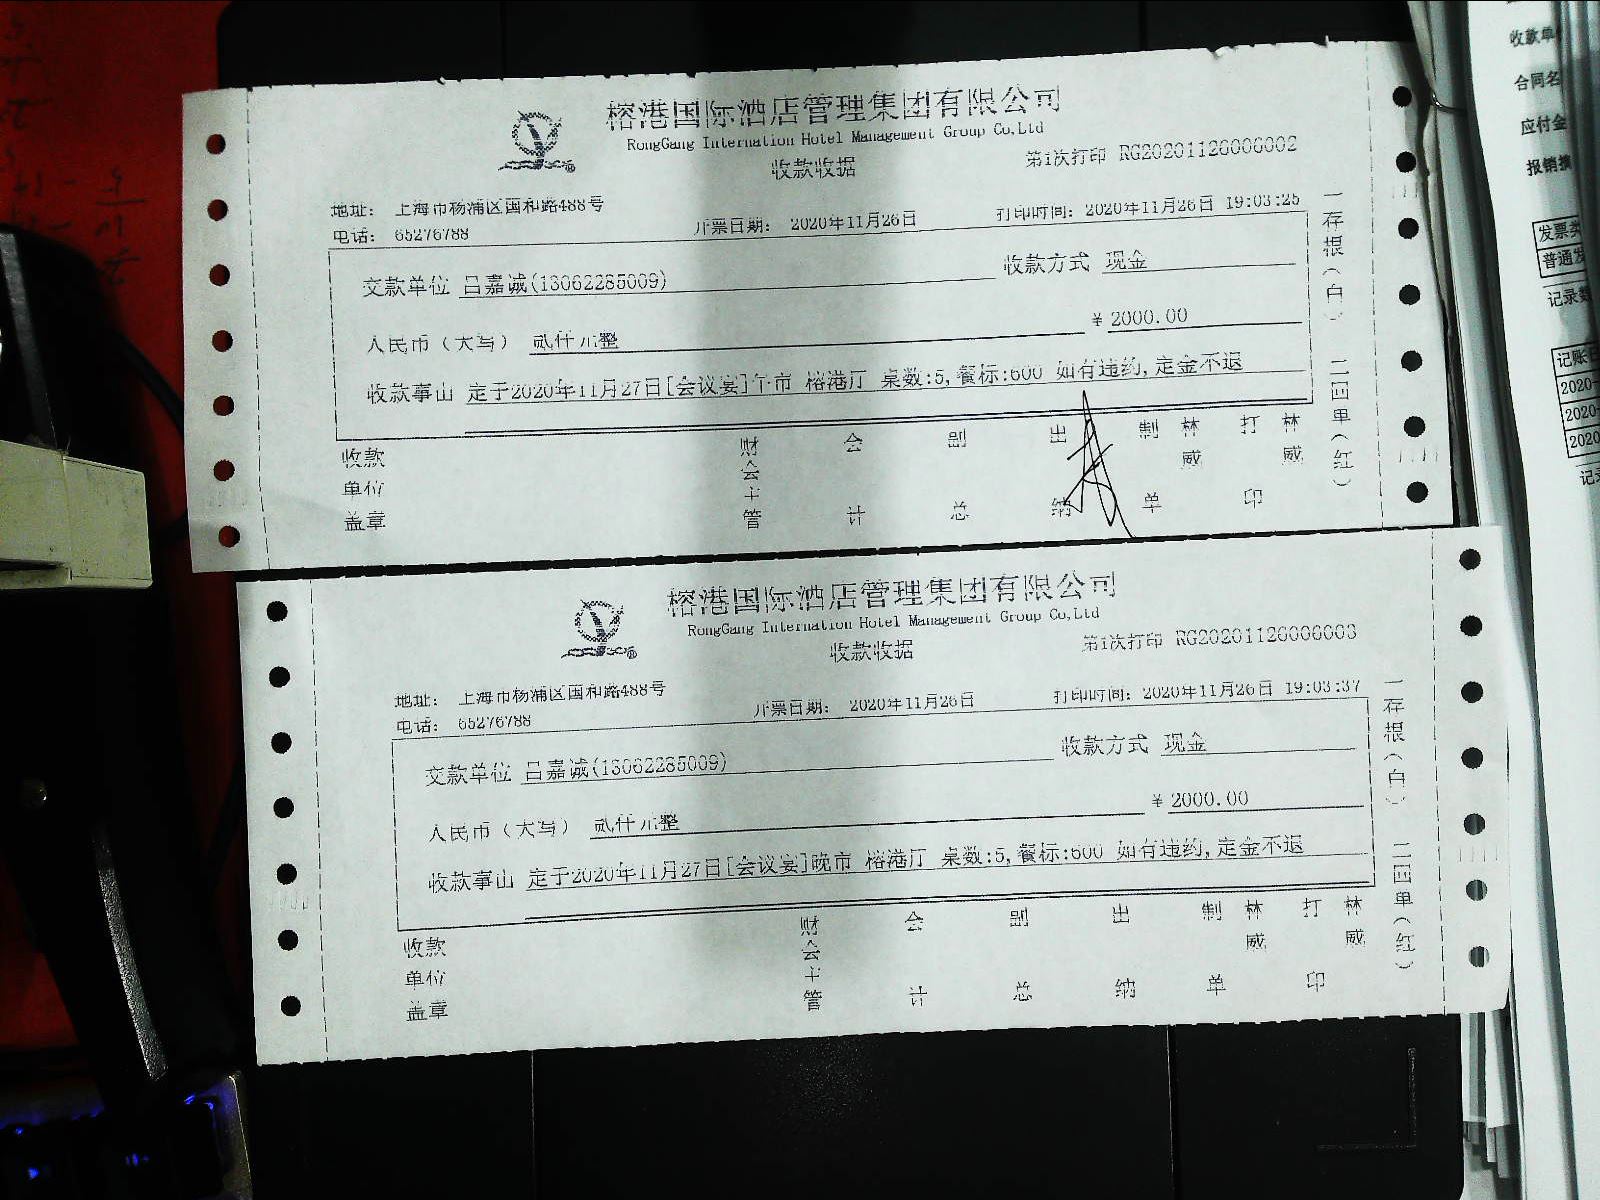 榕港国际酒店管理集团有限公司
RongGang Internation Hotel Management Group Co,Ltd
收款收据
第1次打印 RG20201126000002
地址: 上海市杨浦区国和路488号
电话: 65276788
开票日期: 2020年11月26日
打印时间: 2020年11月26日 19:03:25
交款单位 吕嘉诚(13062285009)
收款方式 现金
人民币(大写) 贰仟元整
¥ 2000.00
收款事由 定于2020年11月27日[会议宴]午市 榕港厅 桌数:5,餐标:600 如有违约,定金不退
收款单位盖章
财会主管
会计
副总
出纳
制单
林威
打印
林威
一存根(白) 二回单(红)
榕港国际酒店管理集团有限公司
RongGang Internation Hotel Management Group Co,Ltd
收款收据
第1次打印 RG20201126000003
地址: 上海市杨浦区国和路488号
电话: 65276788
开票日期: 2020年11月26日
打印时间: 2020年11月26日 19:03:37
交款单位 吕嘉诚(13062285009)
收款方式 现金
人民币(大写) 贰仟元整
¥ 2000.00
收款事由 定于2020年11月27日[会议宴]晚市 榕港厅 桌数:5,餐标:600 如有违约,定金不退
收款单位盖章
财会主管
会计
副总
出纳
制单
林威
打印
林威
一存根(白) 二回单(红)
收款单
合同名
应付金
报销摘
发票类
普通发
记录数
记账日
2020-
2020-
2020